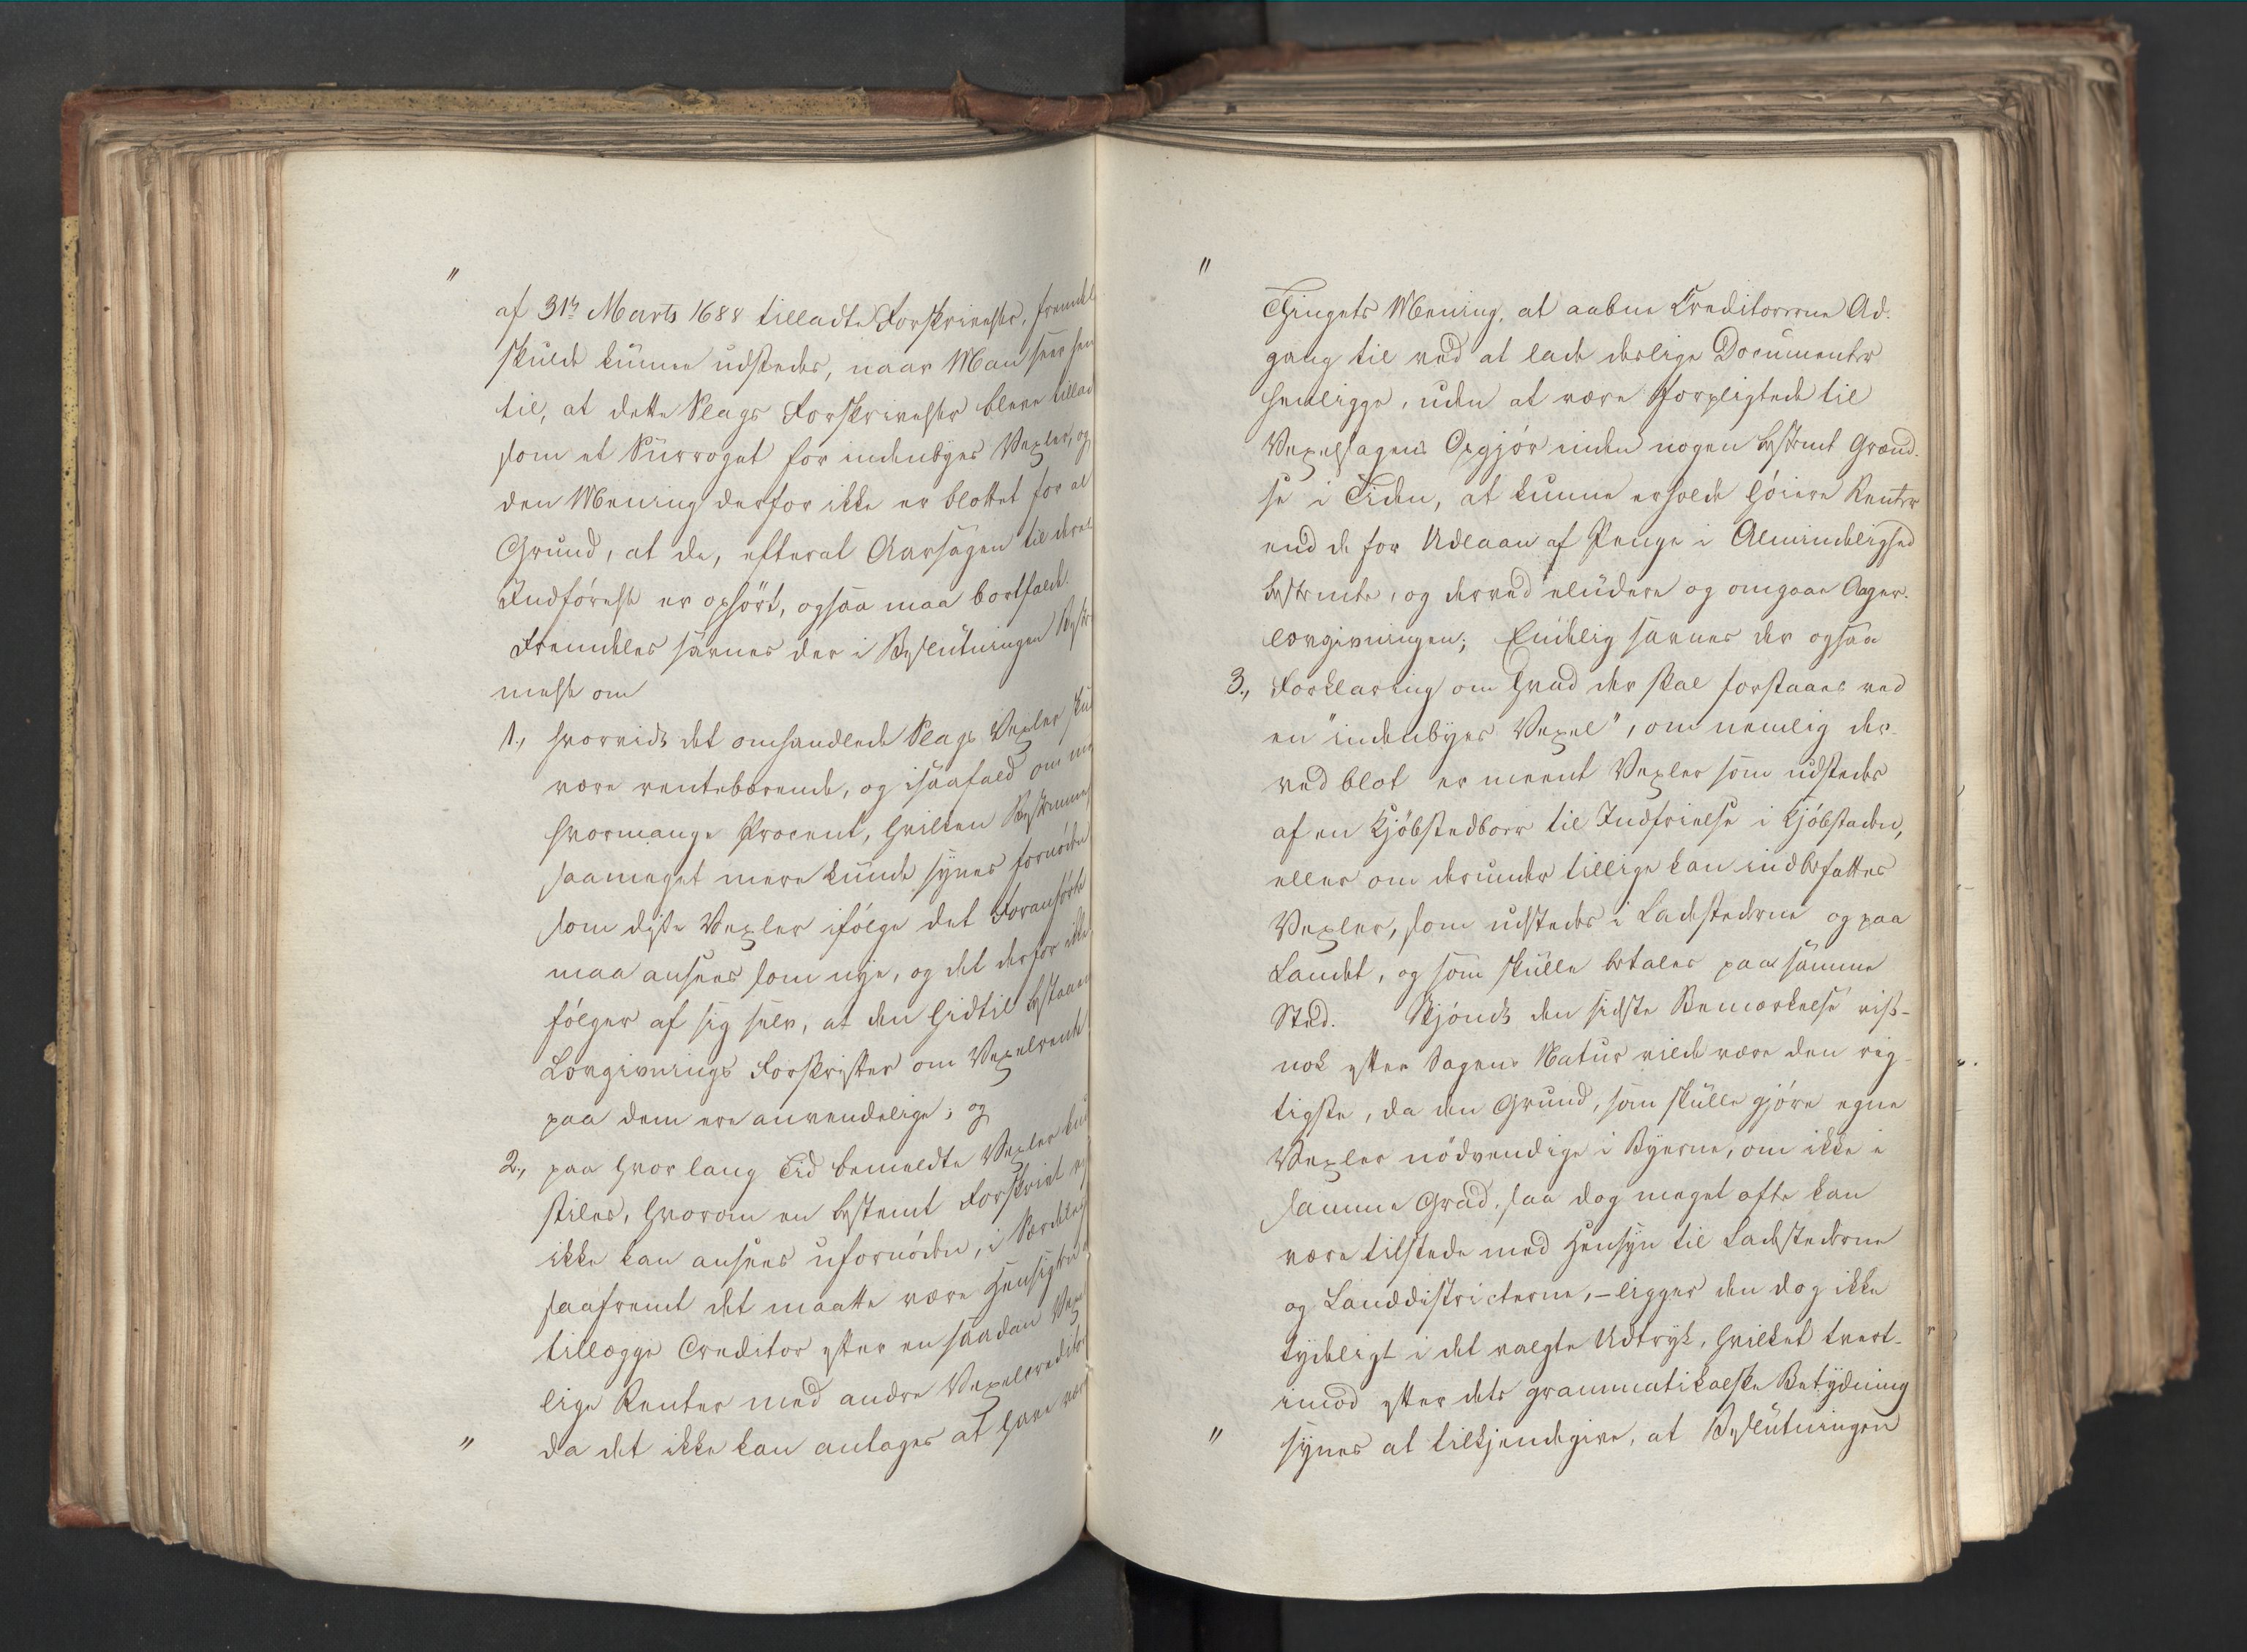 "
af 31te Marts 1688 tilladte Forskrivelser, fremdel
skulde kunne udstedes, naar Man seer hen
til, at dette Slags Forskrivelser bleve tillad
som et Surrogat for indenbyes Vexler, og
den Mening derfor ikke er blottet for al
Grund, at de, efterat Aarsagen til deres
Indførelse er ophørt, ogsaa maa bortfalde.
Fremdeles savnes der i Beslutningen Bestem
melse om
1., hvorvidt det omhandlede Slags Vexler skul
være rentebærende, og isaafald om med
hvormange Procent, hvilken Bestemmel
saameget mere kunde synes fornøden
som disse Vexler ifølge det Foranførte
maa ansees som nye, og det derfor ikke
følger af sig selv, at den hidtil bestaaen
Lovgivnings Forskrifter om Vexelrente
paa dem ere anvendelige; og
2., paa hvor lang Tid bemeldte Vexler kun
stiles, hvorom en bestemt Forskrivt og
ikke kan ansees ufornøden, i Særdeles
saafremt det maatte være Hensigten
tillægge Creditor efter en saadan Vexel
lige Renter med andre Vexelcreditor
" da det ikke kan antages at have vær
"
Thingets Mening, at aabne Creditorerne Ad-
gang til ved at lade deslige Documenter
henligge, uden at være forpligtede til
Vexelsagens Opgjør inden nogen bestemt Grænd-
se i Tiden, at kunne erholde høiere Renter
end de for Udlaan af Penge i Almindelighed
bestemte, og derved eludere og omgaae Aager-
lovgivningen; Endelig savnes der ogsaa
3., Forklaring om hvad der skal forstaaes ved
en "indenbyes Vexel", om nemlig der-
ved blot er meent Vexler som udstedes
af en Kjøbstedborer til Indfrielse i Kjøbstaden,
eller om derunder tillige kan indbefattes
Vexler, som udstedes i Ladestederne og paa
Landet, og som skulle betales paa samme
Sted. Skjøndt den sidste Bemærkelse vist-
nok efter Sagens Natur vilde være den rig-
tigste, da den Grund, som skulle gjøre egne
Vexler nödvendige i Byerne, om ikke i
samme Grad, saa dog meget ofte kan
være tilstede med Hensyn til Ladestederne
og Landdistricterne, – ligger den dog ikke
tydeligt i det valgte Udtryk, hvilket tvert-
imod efter dets grammatikalske Betydning
" synes at tilkjendegive, at Beslutningen